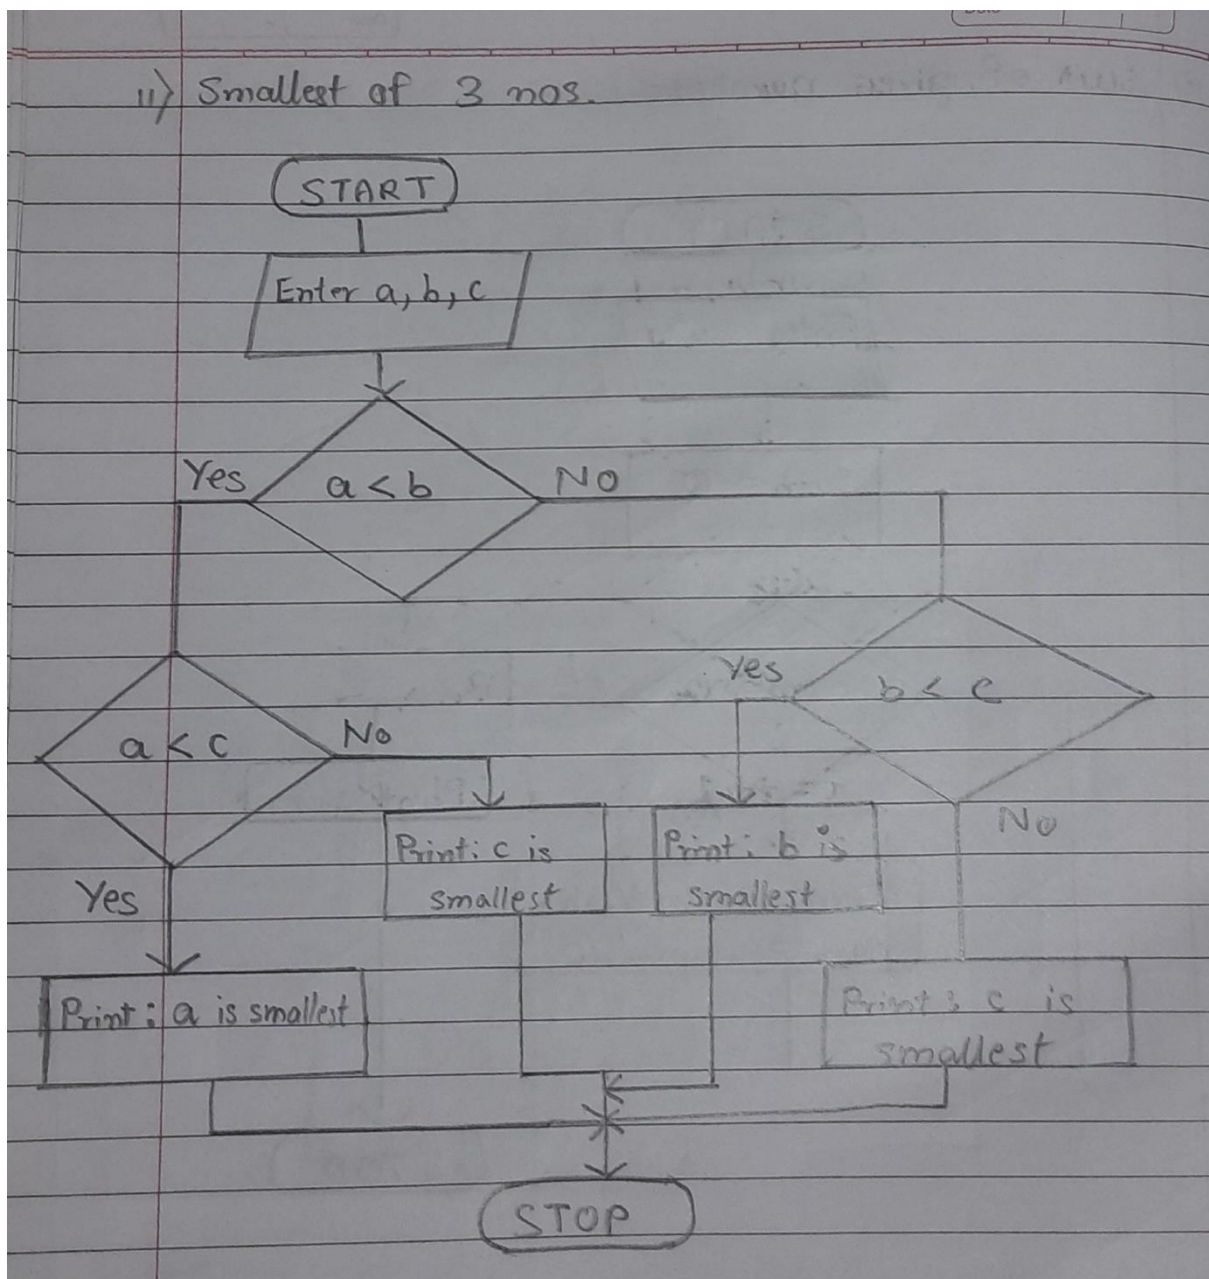 11) Smallest of 3 nos.
START
Enter a, b, c
Yes
a < b
NO
a < c
No
Yes
b < c
Yes
No
Print: c is
smallest
Print: b is
smallest
Print: a is smallest
Print: c is
smallest
STOP